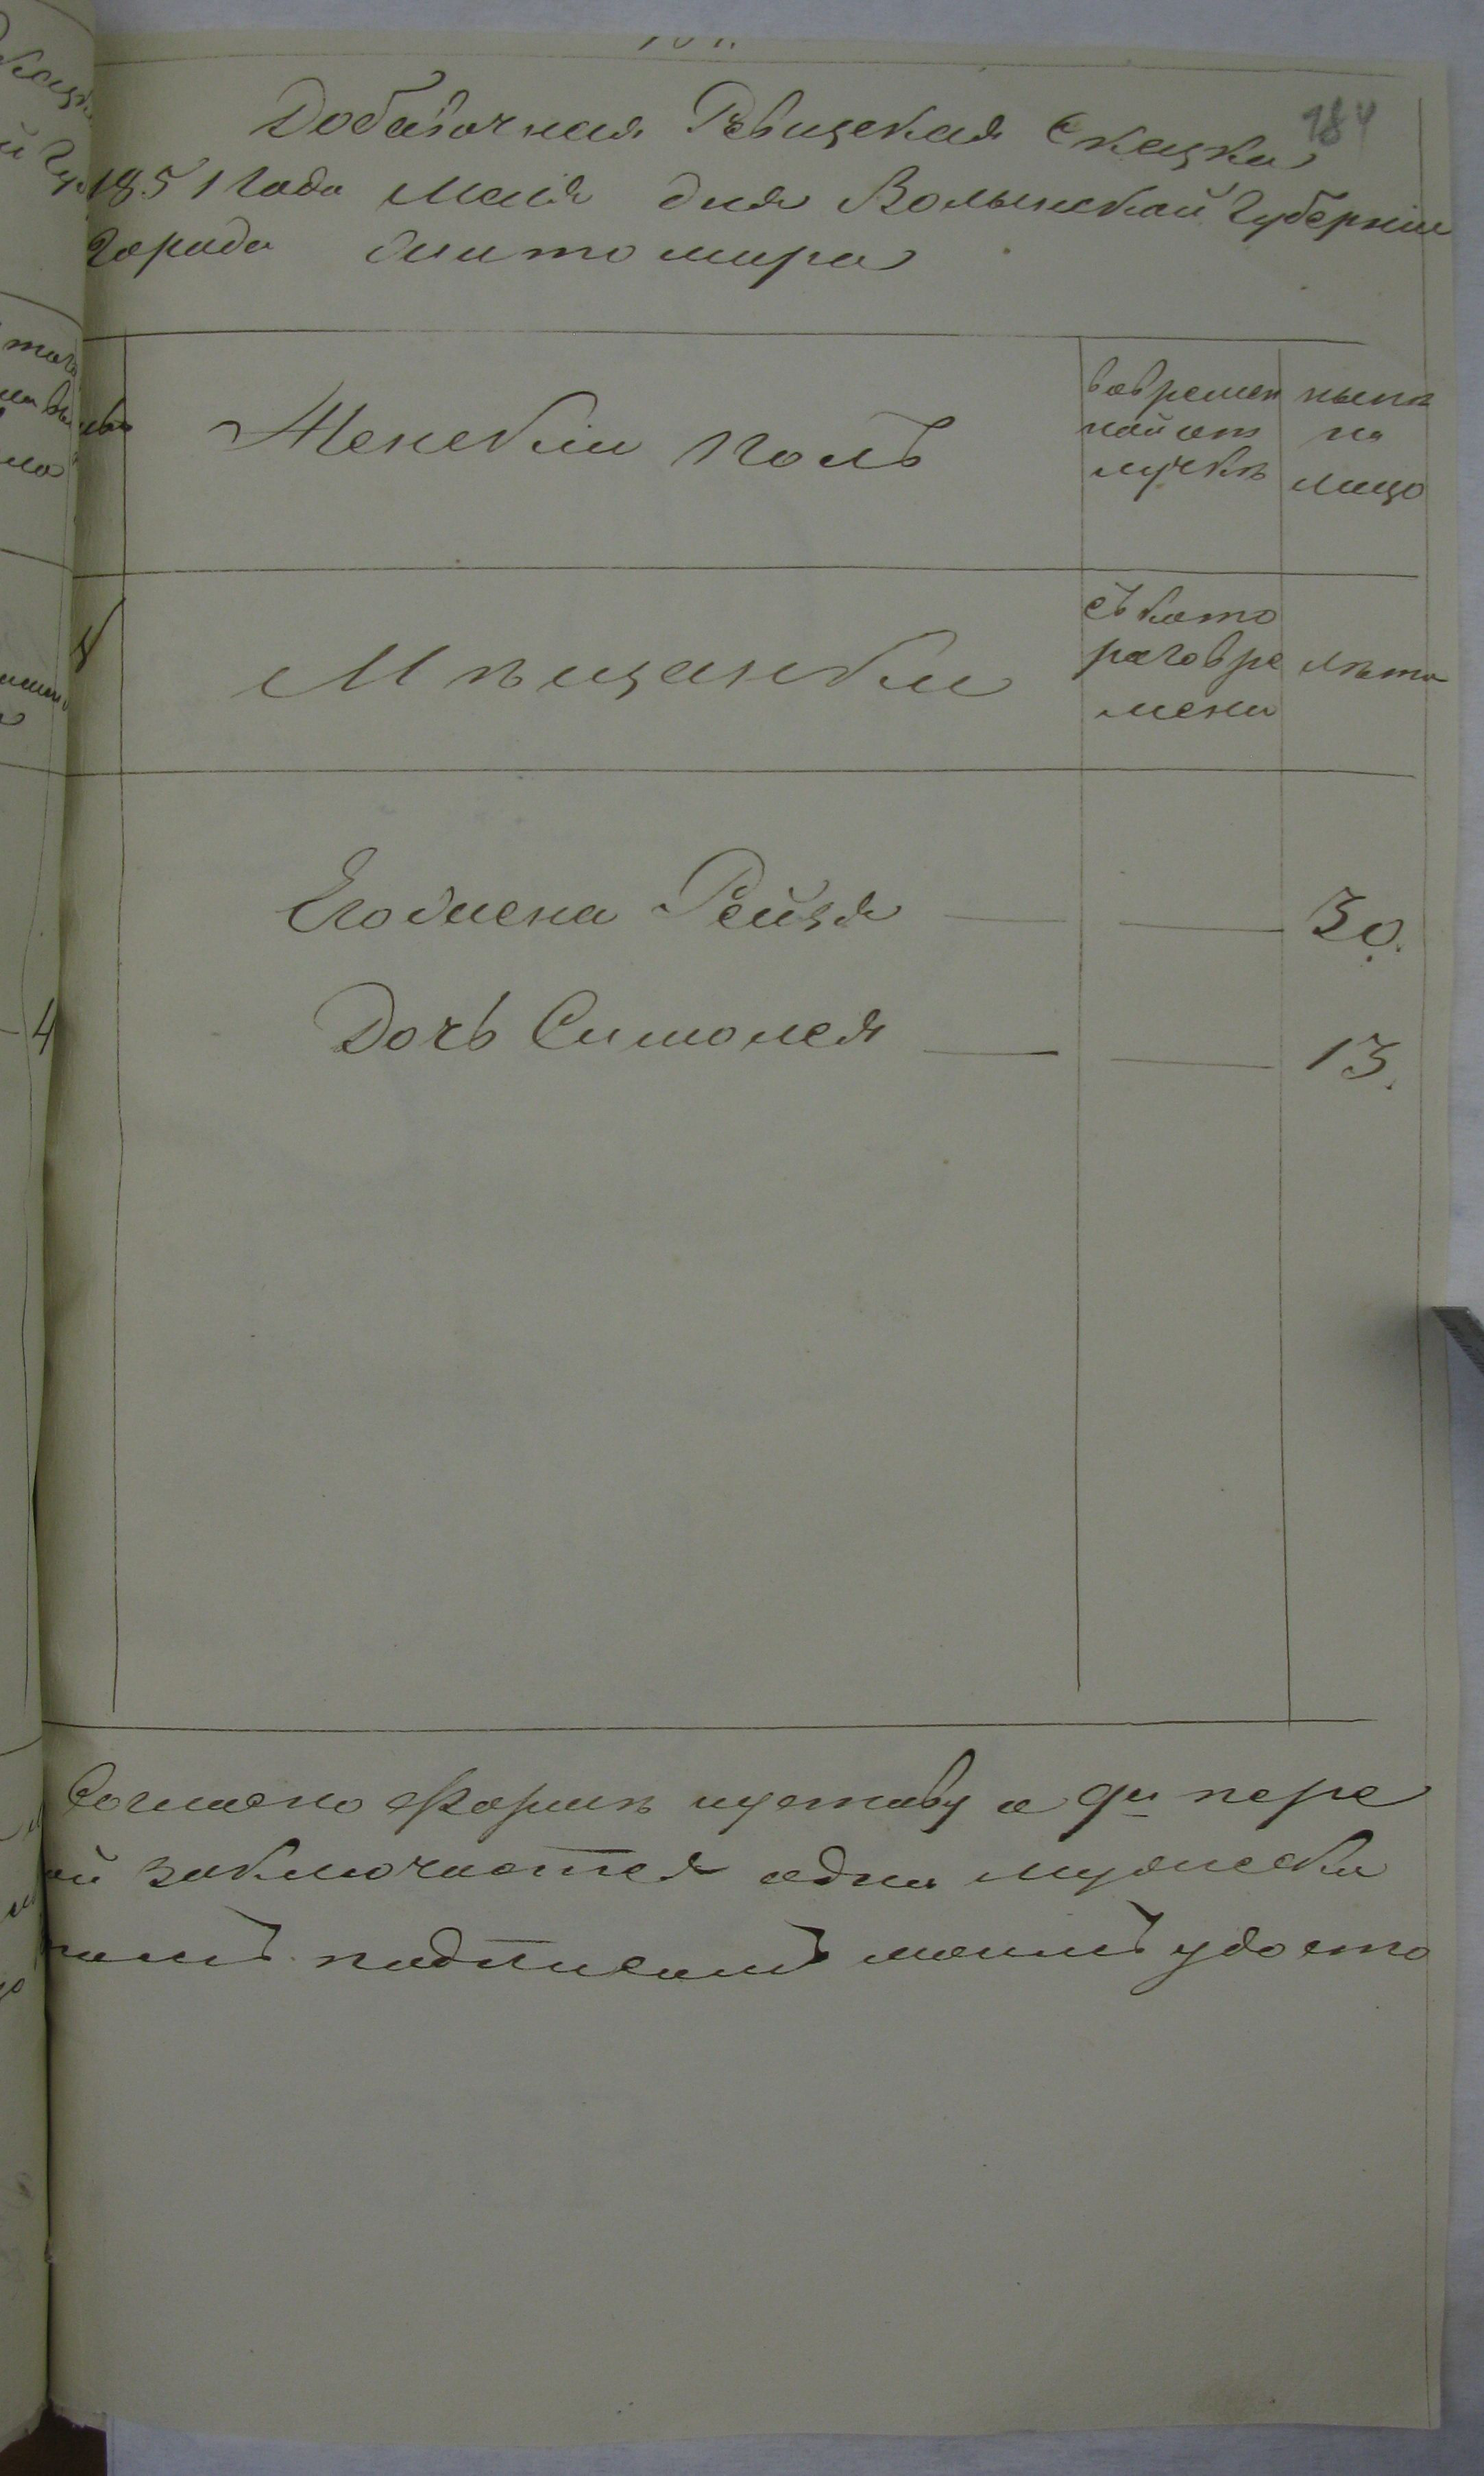 184
Добавочная Ревизская Сказка
1851 года Маія дня Волынской Губерніи
Города Житомира
Женскій полъ
вовремен
ной от
лучкѣ
нынѣ
на
лицо
Мѣщанки
съ кото
раго вре
мени
лѣта
Его жена Рейзя 30.
Дочь Симолея 13.
4
Согласно Формѣ уставу о 9й пере
ой заключается одна мужеска
подписомъ моимъ удосто